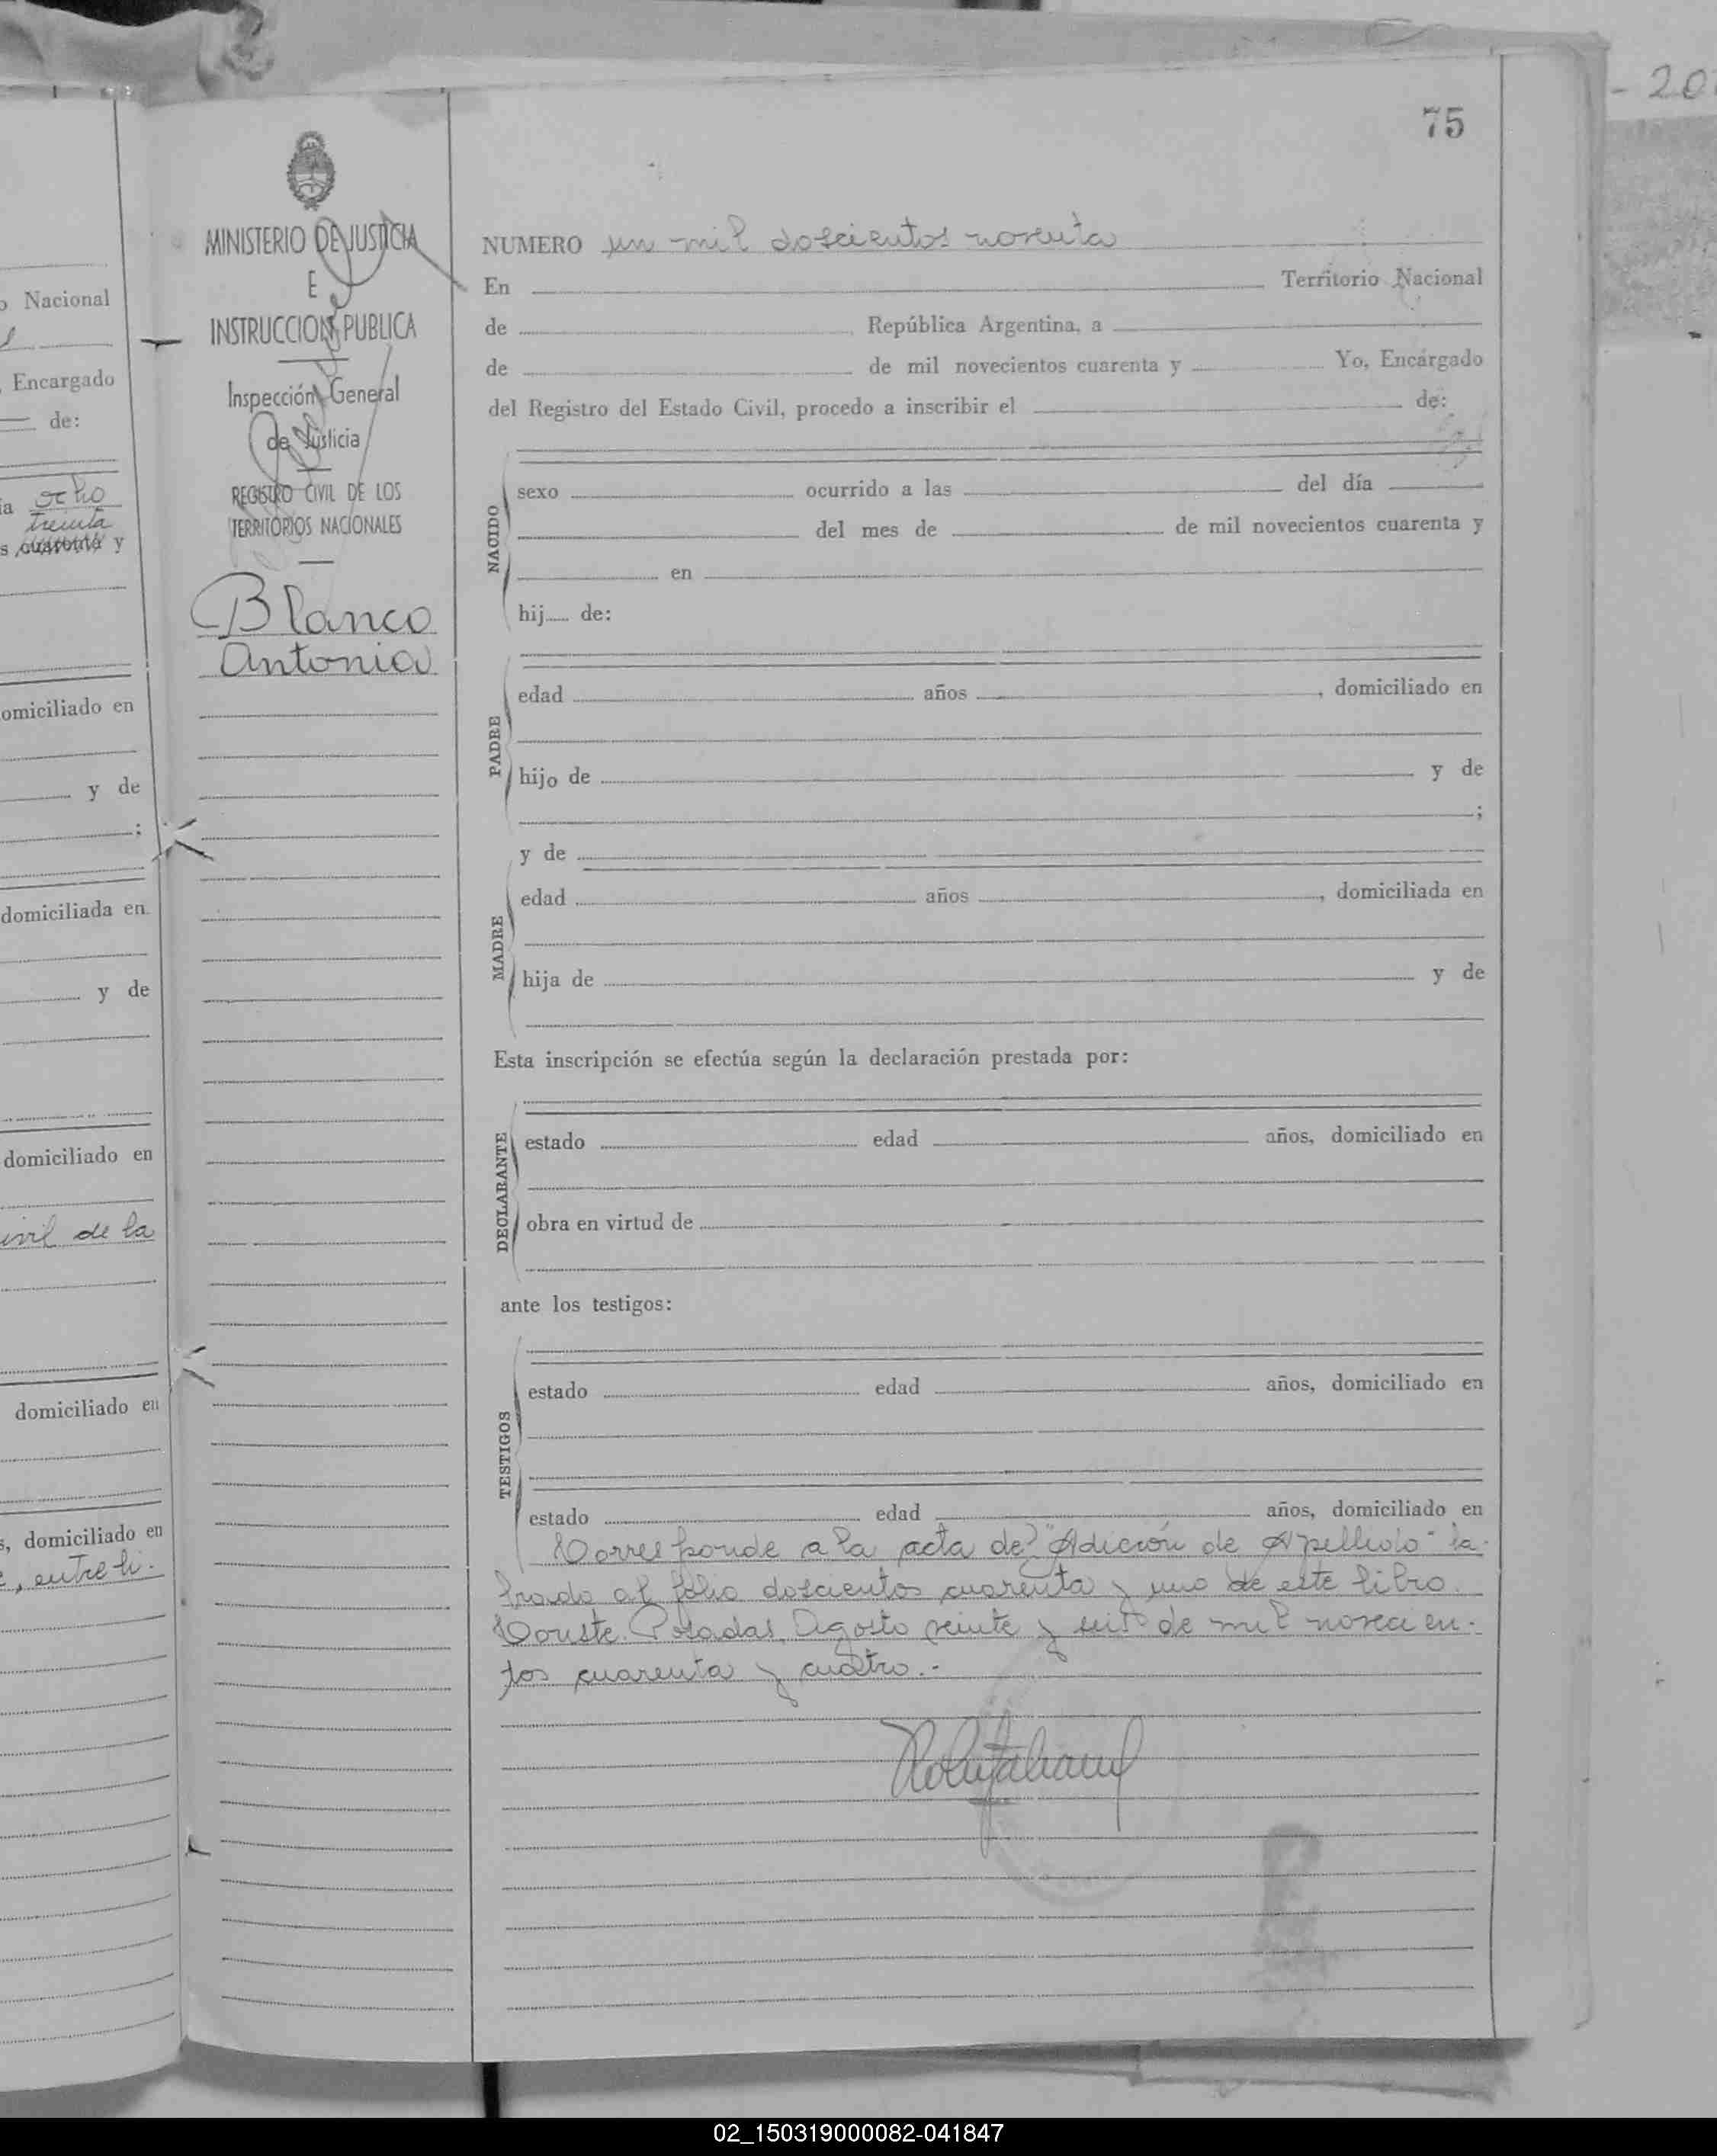 - 20
75
o Nacional
Encargado
de:
ia ocho
treinta
s cuarenta y
omiciliado en
y de
;
domiciliada en
y de
domiciliado en
ivil de la
domiciliado en
s, domiciliado en
, entre li-
MINISTERIO DE JUSTICIA
E
INSTRUCCION PUBLICA
Inspección General
de Justicia
REGISTRO CIVIL DE LOS
TERRITORIOS NACIONALES
Blanco
Antonia
NUMERO un mil doscientos noventa
En Territorio Nacional
de República Argentina, a
de de mil novecientos cuarenta y Yo, Encargado
del Registro del Estado Civil, procedo a inscribir el de:
NACIDO
sexo ocurrido a las del día
del mes de de mil novecientos cuarenta y
en
hij de:
PADRE
edad años , domiciliado en
hijo de y de
;
y de
MADRE
edad años , domiciliada en
hija de y de
Esta inscripción se efectúa según la declaración prestada por:
DECLARANTE
estado edad años, domiciliado en
obra en virtud de
ante los testigos:
TESTIGOS
estado edad años, domiciliado en
estado edad años, domiciliado en
Corresponde a la acta de "Adición de Apellido" la-
brada al folio doscientos cuarenta y uno de este libro.
Conste. Posadas, Agosto veinte y seis de mil novecien-
tos cuarenta y cuatro.-
02_150319000082-041847